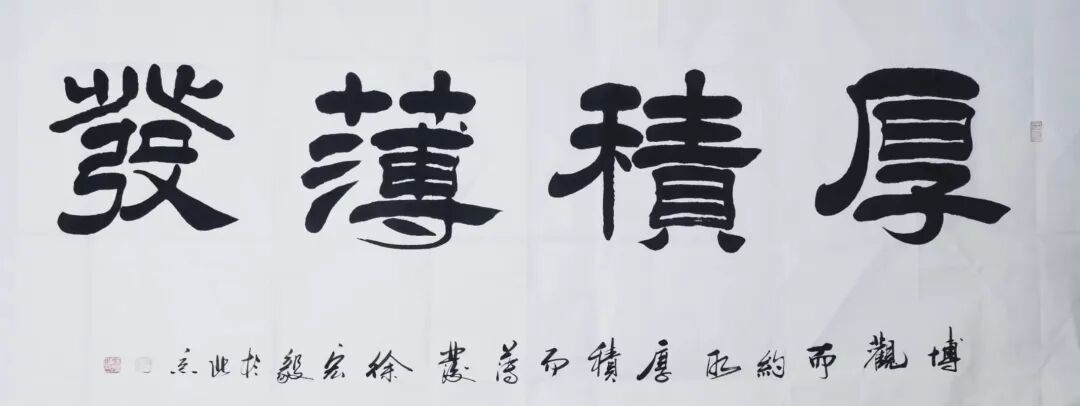 厚積薄發
博觀而約取厚積而薄發徐宏毅於北京